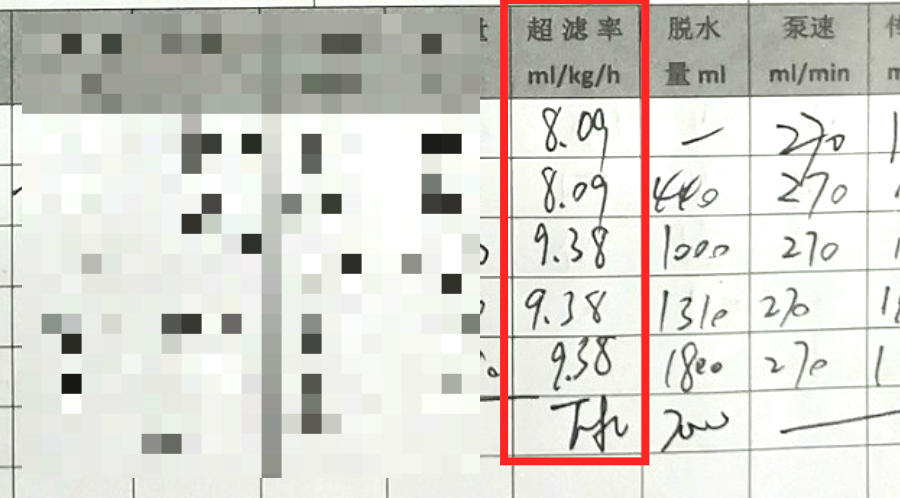 超滤率 脱水 泵速
ml/kg/h 量 ml ml/min
8.09 — 270
8.09 440 270
9.38 1000 270
9.38 1310 270
9.38 1800 270
下机